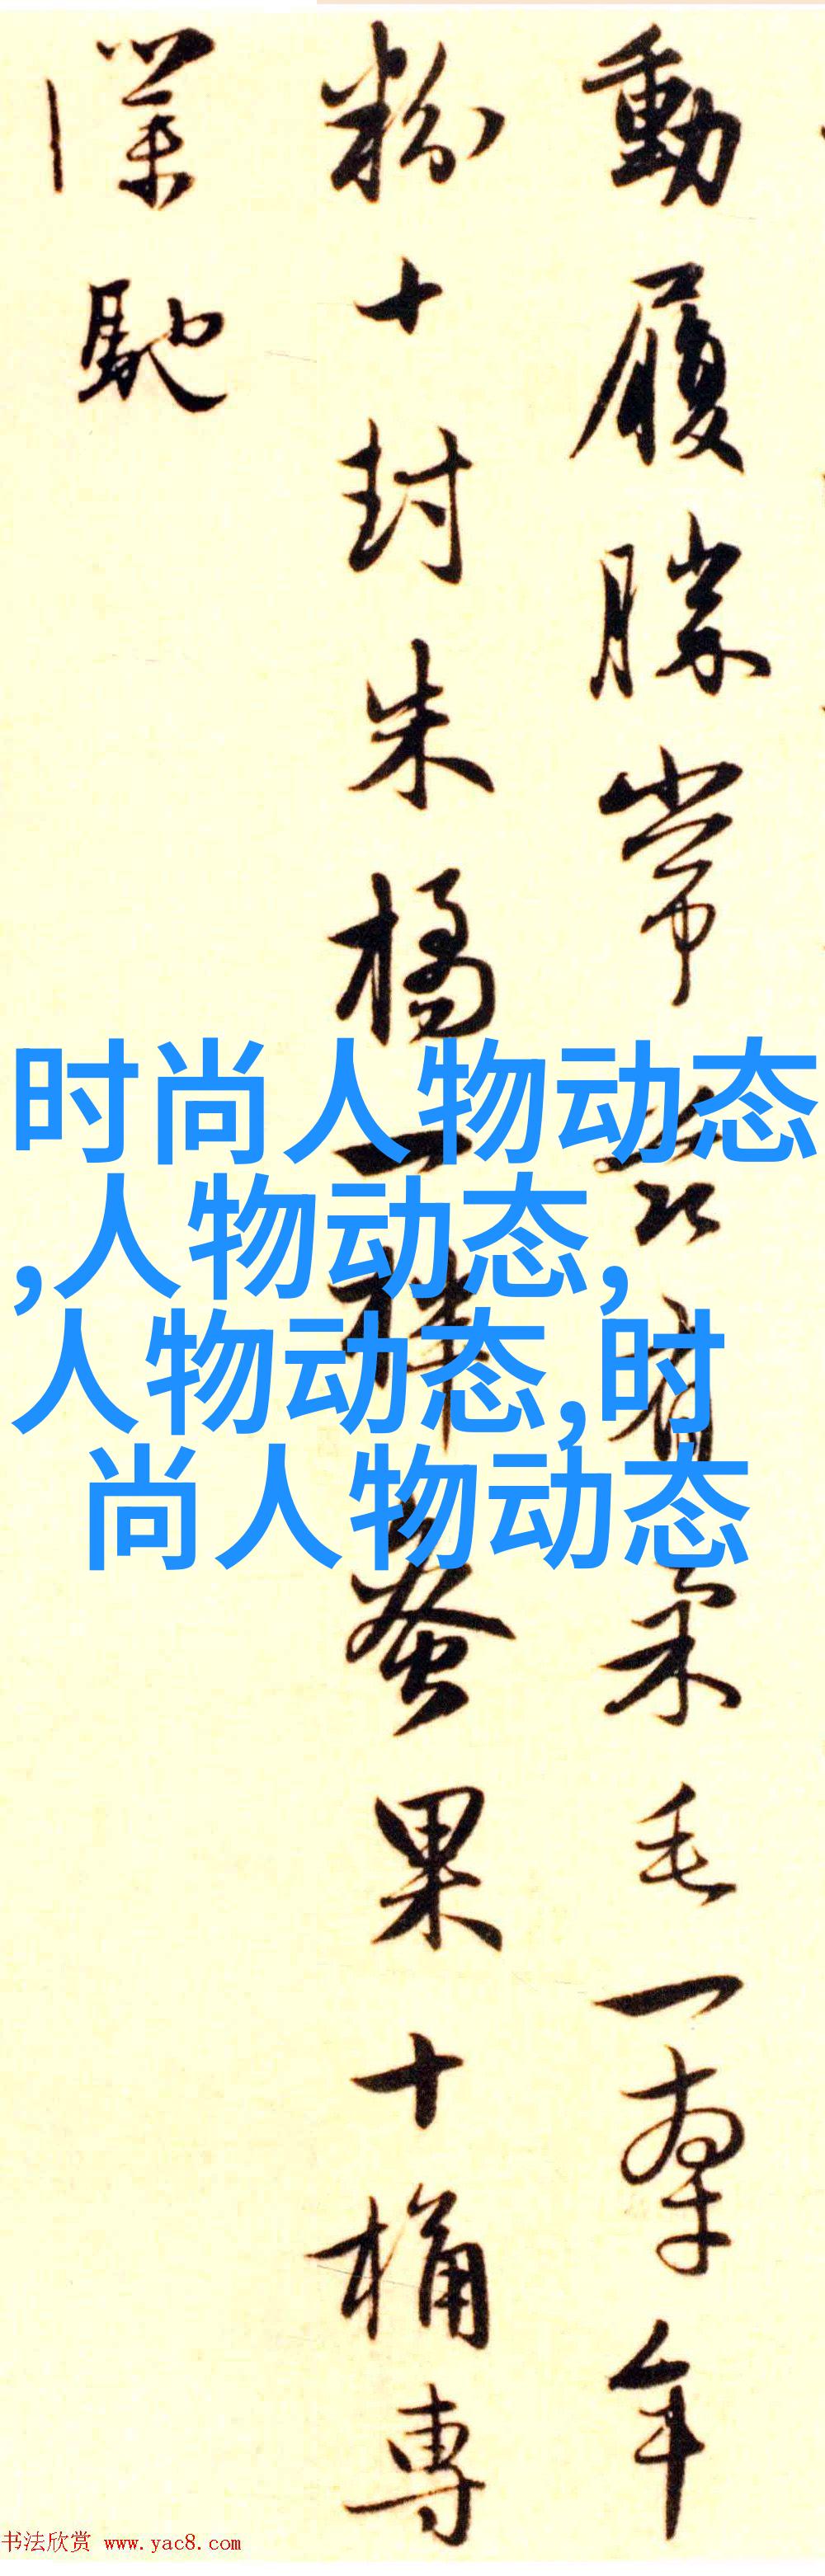 動履勝常
柔毛一牽年
粉十封朱橘一
蚕果十桶專
馳
时尚人物动态
,人物动态,
人物动态,时
尚人物动态
书法欣赏 www.yac8.com